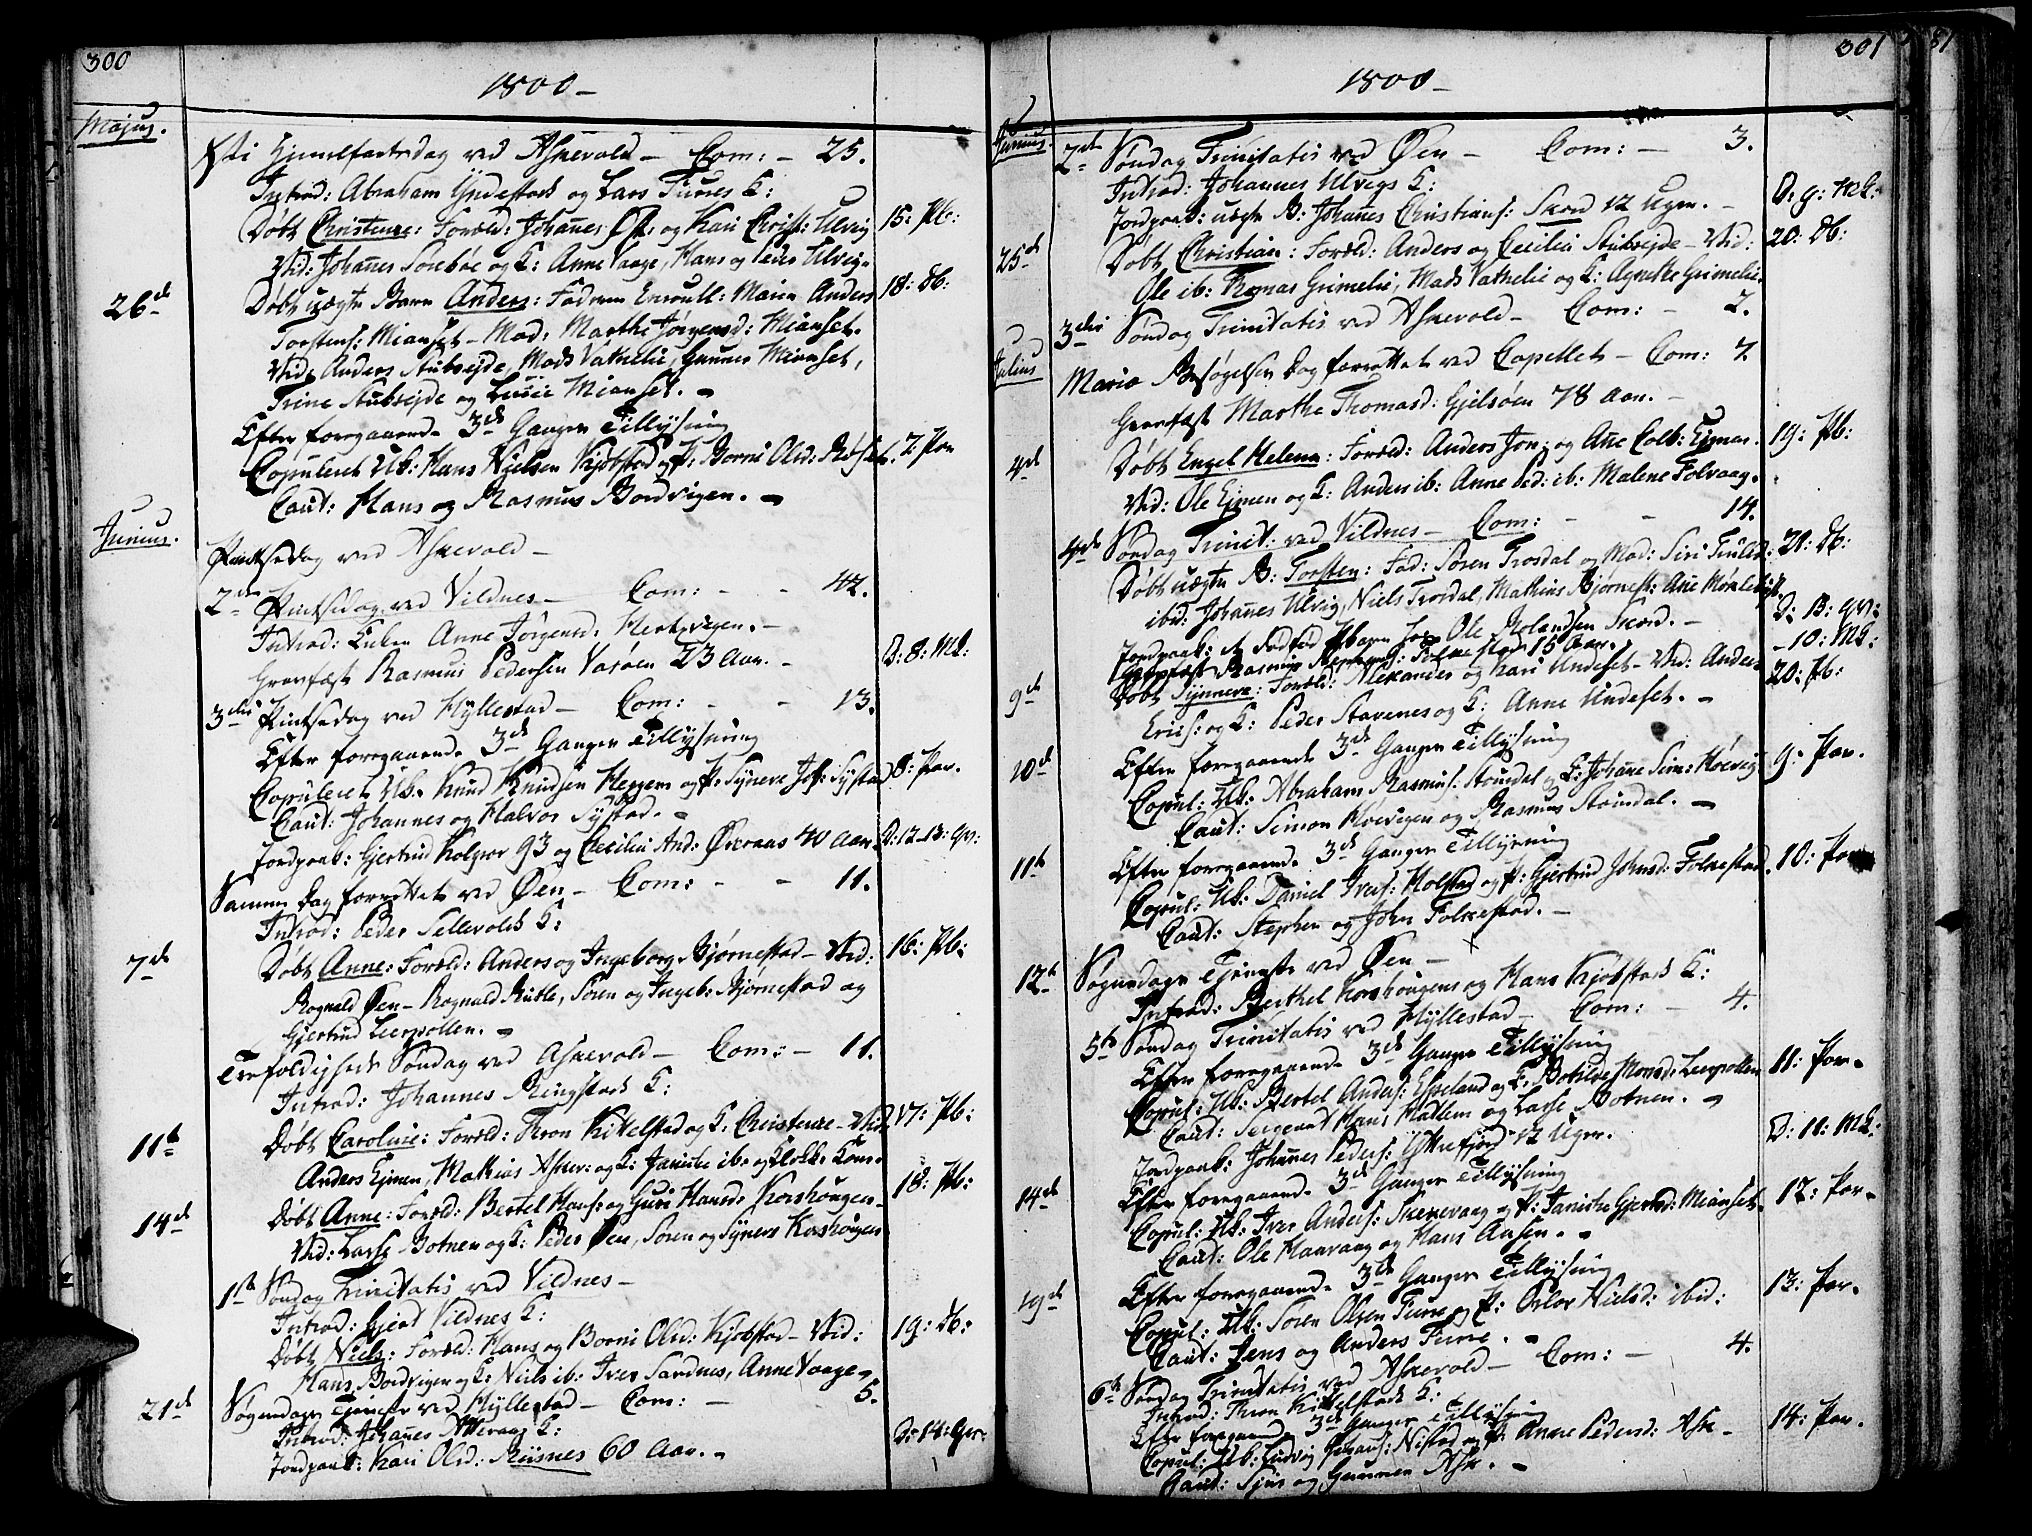 300
1800 –
Majus.
Kti Himmelfarts dag ved Askevold – Com: – 25.
Introd: Abraham Yndestads og Lars Tunes K:
Døbt Christense: Foræld: Johañes Ols: og Kari Christ: Ulvig 15: Pb:
Vid: Johañes Sørebøe og K: Anne Vaage, Hans og Peder Ulvig
26de Døbt uægte Barn Anders: Faderen Enroull: Maria Anders 18: Db:
Torstens: Mianset – Mod: Marthe Jørgensd: Mianset.
Vid: Anders Stubseide, Mads Vatnelie, Gunner Mianset,
Trine Stubseide og Lussie Mianset. –
Efter foregaaende 3de Ganger Tillysning
Copuleret Uk: Hans Nielsen Kjøbstad og P: Borni Olsd: Røset. 7. Par
Caut: Hans og Rasmus Bordvigen. –
Junius.
Pintsedag ved Askevold –
2de Pintsedag ved Vildnes – Com: – – 42.
Introd: Enken Anne Jørgensd. Hertevigen. –
Gravfæst Rasmus Pedersen Varøen 23 Aar. – D: 8: Mk:
3die Pintsedag ved Hyllestad – Com: – – 13.
Efter foregaaende 3de Ganger Tillysning
Copuleret Uk. Knud Knudsen Heggem og P. Synneve Joh: Systad 8: Par.
Caut: Johannes og Halvor Systad. –
Jordpaak: Gjertrud Kolgror 93 og Cecilie And: Øveraas 40 Aar. D: 12–13: Qv:
Samme Dag forrettet ved Øen – Com: – – 11.
Introd: Peder Sellevolds K:
7de Døbt Anne: Foræld: Anders og Ingeborg Bjørnestad – Vid: 16: Pb:
Rognald Øen – Rognald Rutle, Søren og Ingeb: Bjørnestad og
Gjertrud Leerpollen. –
Trefoldigheds Søndag ved Askevold – Com: – 11.
Introd: Johannes Ringstads K:
11te Døbt Caroline: Foræld: Thron Kittelstad og K. Christense – Vid. 17: Pb:
Anders Eimen, Mathias Asker: og K: Janiche ib. og Klokk. Kone
14de Døbt Anne: Foræld: Bertel Hans: og Guri Hansd: Korshougen – 18: Pb:
Vid: Lasse Botnen og K: Peder Øen, Søren og Syneve Korshougen
1te Søndag Trinitatis ved Vildnes –
Introd: Giert Vildnes K:
Døbt Niels: Foræld: Hans og Borni Olsd: Kjøbstad – Vid: 19: Db:
Hans Bordvigen og K: Niels ib: Iver Sandnes, Anne Vaage
21de Søgnedags Tjeneste ved Hyllestad – Com: – 5.
Introd: Johañes Atteraas K:
Jordpaak: Kari Olsd: Riisnes 60 Aar. – D: 14: Qv:
301
1800 –
Junius.
2de Søndag Trinitatis ved Øen – Com: – 3.
Introd: Johannes Ulvigs K:
Jordpaak: uægte B: Johañes Christians: Skor 12 Uger. – D: 9: Mk:
25de Døbt Christian: Foræld: Anders og Cecilie Stubseide – Vid: 20: Db:
Ole ib: Thomas Grimelie, Mads Vatnelie og K: Agnethe Grimelie
3die Søndag Trinitatis ved Askevold – Com: – 2.
Julius
Mariæ Besøgelses Dag forrettet ved Capellet – Com: 7.
Gravfæst Marthe Thomasd: Gjelsøen 78 Aar. –
4de Døbt Engel Helena: Foræld: Anders Jon: og Añe Colb: Eimen. 19: Pb:
Vid: Ole Eimen og K: Anders ib: Anne Ped: ib: Malene Folvaag.
4de Søndag Trinit: ved Vildnes – Com: – – 14.
Døbt uægte B: Torsten: Fad: Søren Trosdal og Mod: Siri Trulsd: 21: Db:
ibid: Johañes Ulvig, Niels Trosdal, Mathias Bjørnest: Añe
Jordpaak: Ole Rolandsen Skord. – D: B: Qv:
Gravfæst Rasmus 15 Aar. – 10: Mk:
9de Døbt Synneve: Foræld: Alexander og Kari Undeset – Vid: Anders 20: Pb:
Erics: og K: Peder Stavenes og K: Anne Undeset. –
10de Efter foregaaende 3de Ganger Tillysning
Copul: Uk: Abraham Rasmus: Stoindal og P: Johañe Sim: Høevig 9: Par.
Caut: Simon Høevigen og Rasmus Stoindal. –
11te Efter foregaaende 3de Ganger Tillysning
Copul: Uk: Daniel Ivers: Holstad og P: Gjertrud Johnsd: Folkestad. 10: Par
Caut: Stephen og John Folkestad. –
12te Søgnedags Tjeneste ved Øen –
Introd: Berthel Korshougens og Hans Kjøbstads K:
5te Søndag Trinitatis ved Hyllestad – Com: – 4.
Efter foregaaende 3de Ganger Tillysning
Copul: Uk: Bertel Anders: Espeland og P. Botilde Monsd. Leerpollen 11: Par.
Caut: Sergeant Hans Hatlem og Lasse Botnen. –
Jordpaak: Johañes Peders: Yttrefjord 12 Uger. D: 11: Mk:
14de Efter foregaaende 3de Ganger Tillysning
Copul: Uk: Iver Anders: Skreevaag og P: Janiche Gjertsd: Mianset. 12: Par.
Caut: Ole Haavaag og Hans Aasen. –
19de Efter foregaaende 3de Ganger Tillysning
Copul: Uk: Søren Olsen Tune og P: Oslov Nielsd: ibid: 13: Par.
Caut: Jens og Anders Tune. –
6te Søndag Trinitatis ved Askevold – Com: – 4.
Introd: Thron Kittelstads K:
Efter foregaaende 3de Ganger Tillysning
Copul: Uk: Ludvig Nistad og P: Anne Pedersd: Ask – 14: Par.
Caut: Sjur og Gunnen Ask. –